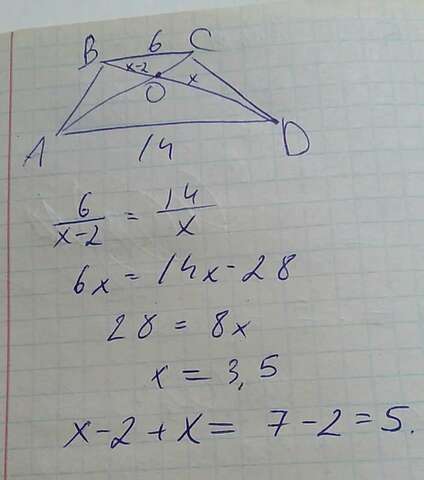 6
B C
x-2 x
O
A D
14
6/(x-2) = 14/x
6x = 14x-28
28 = 8x
x = 3,5
x-2+x = 7-2=5.